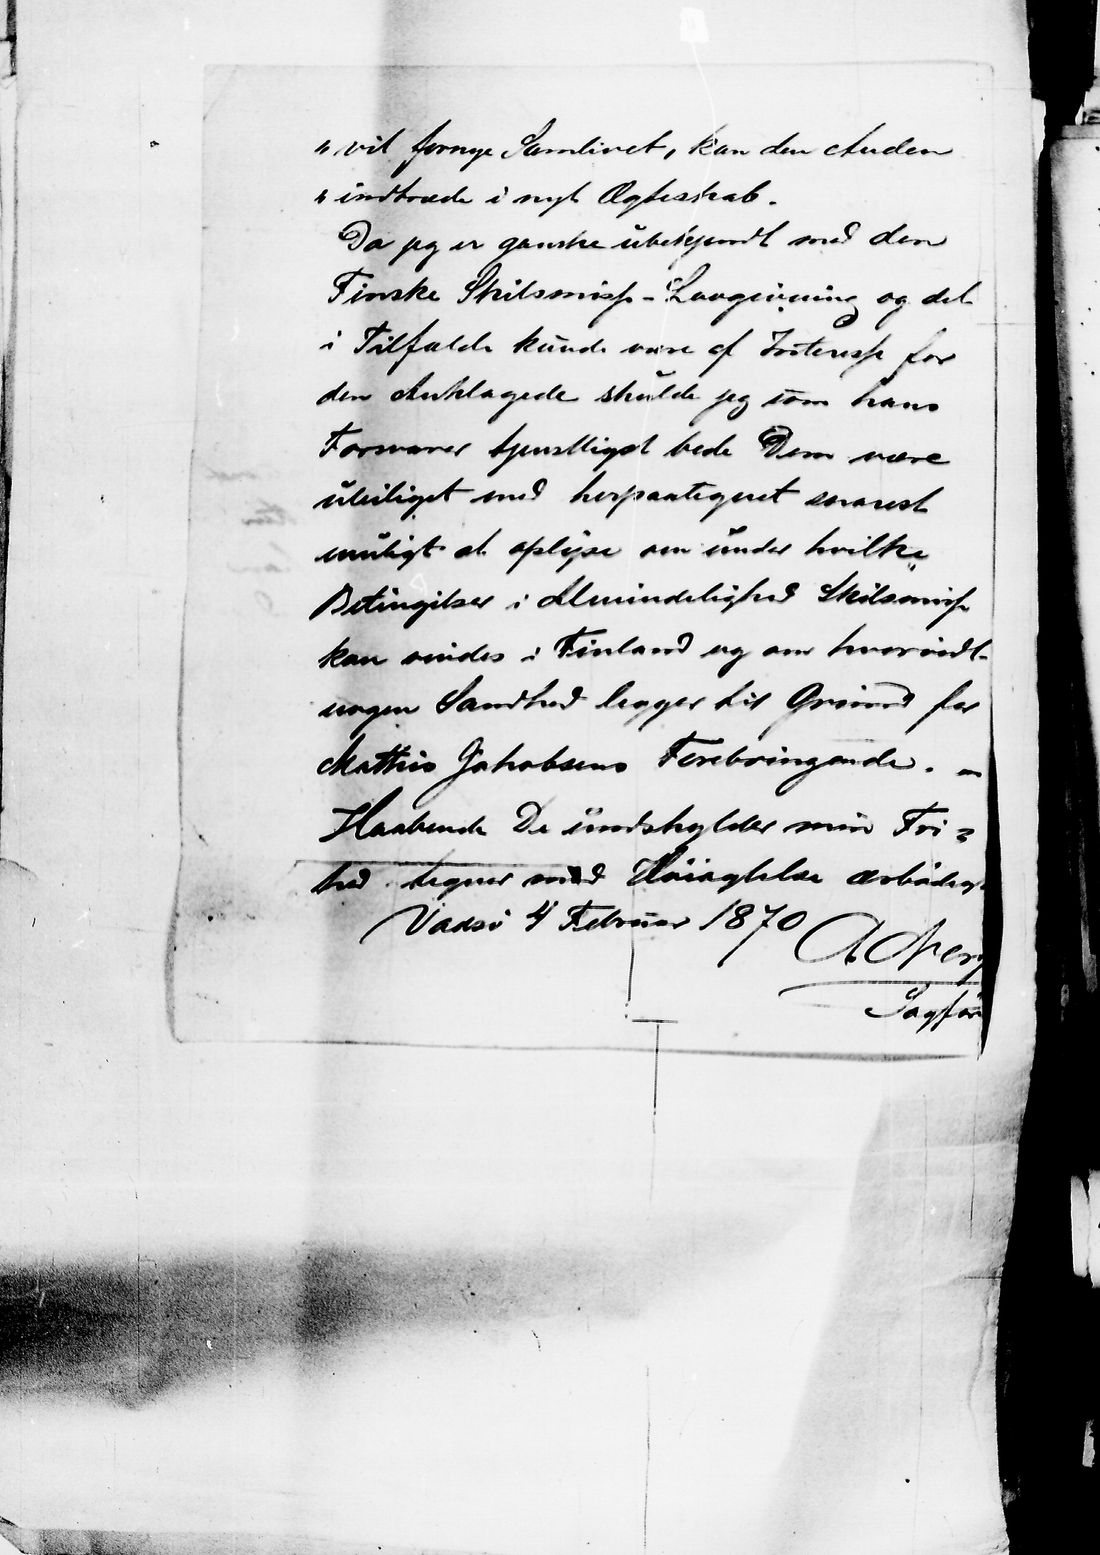 " vil fornye Samlivet, kan den Anden
" indtræde i nyt Ægteskab.
Da jeg er ganske übekjendt med den
Finske Skilsmisse-Lovgivning og det
i Tilfælde kunde være af Interesse for
den Anklagede skulde jeg som hans
Forsvarer tjenstligst bede Dem være
üleiliget med herpaategnet snarest
müligt at oplyse om ünder hvilke
Betingelser i Almindelighed Skilsmisse
kan vindes i Finland og om hvorvidt
nogen Sandhed ligger til Gründ for
Mathis Jakobsens Forebringende. –
Haabende De ündskylder min Fri=
hed tegner med Høiagtelse ærbødigst
Vadsø 4 Februar 1870
Sagför